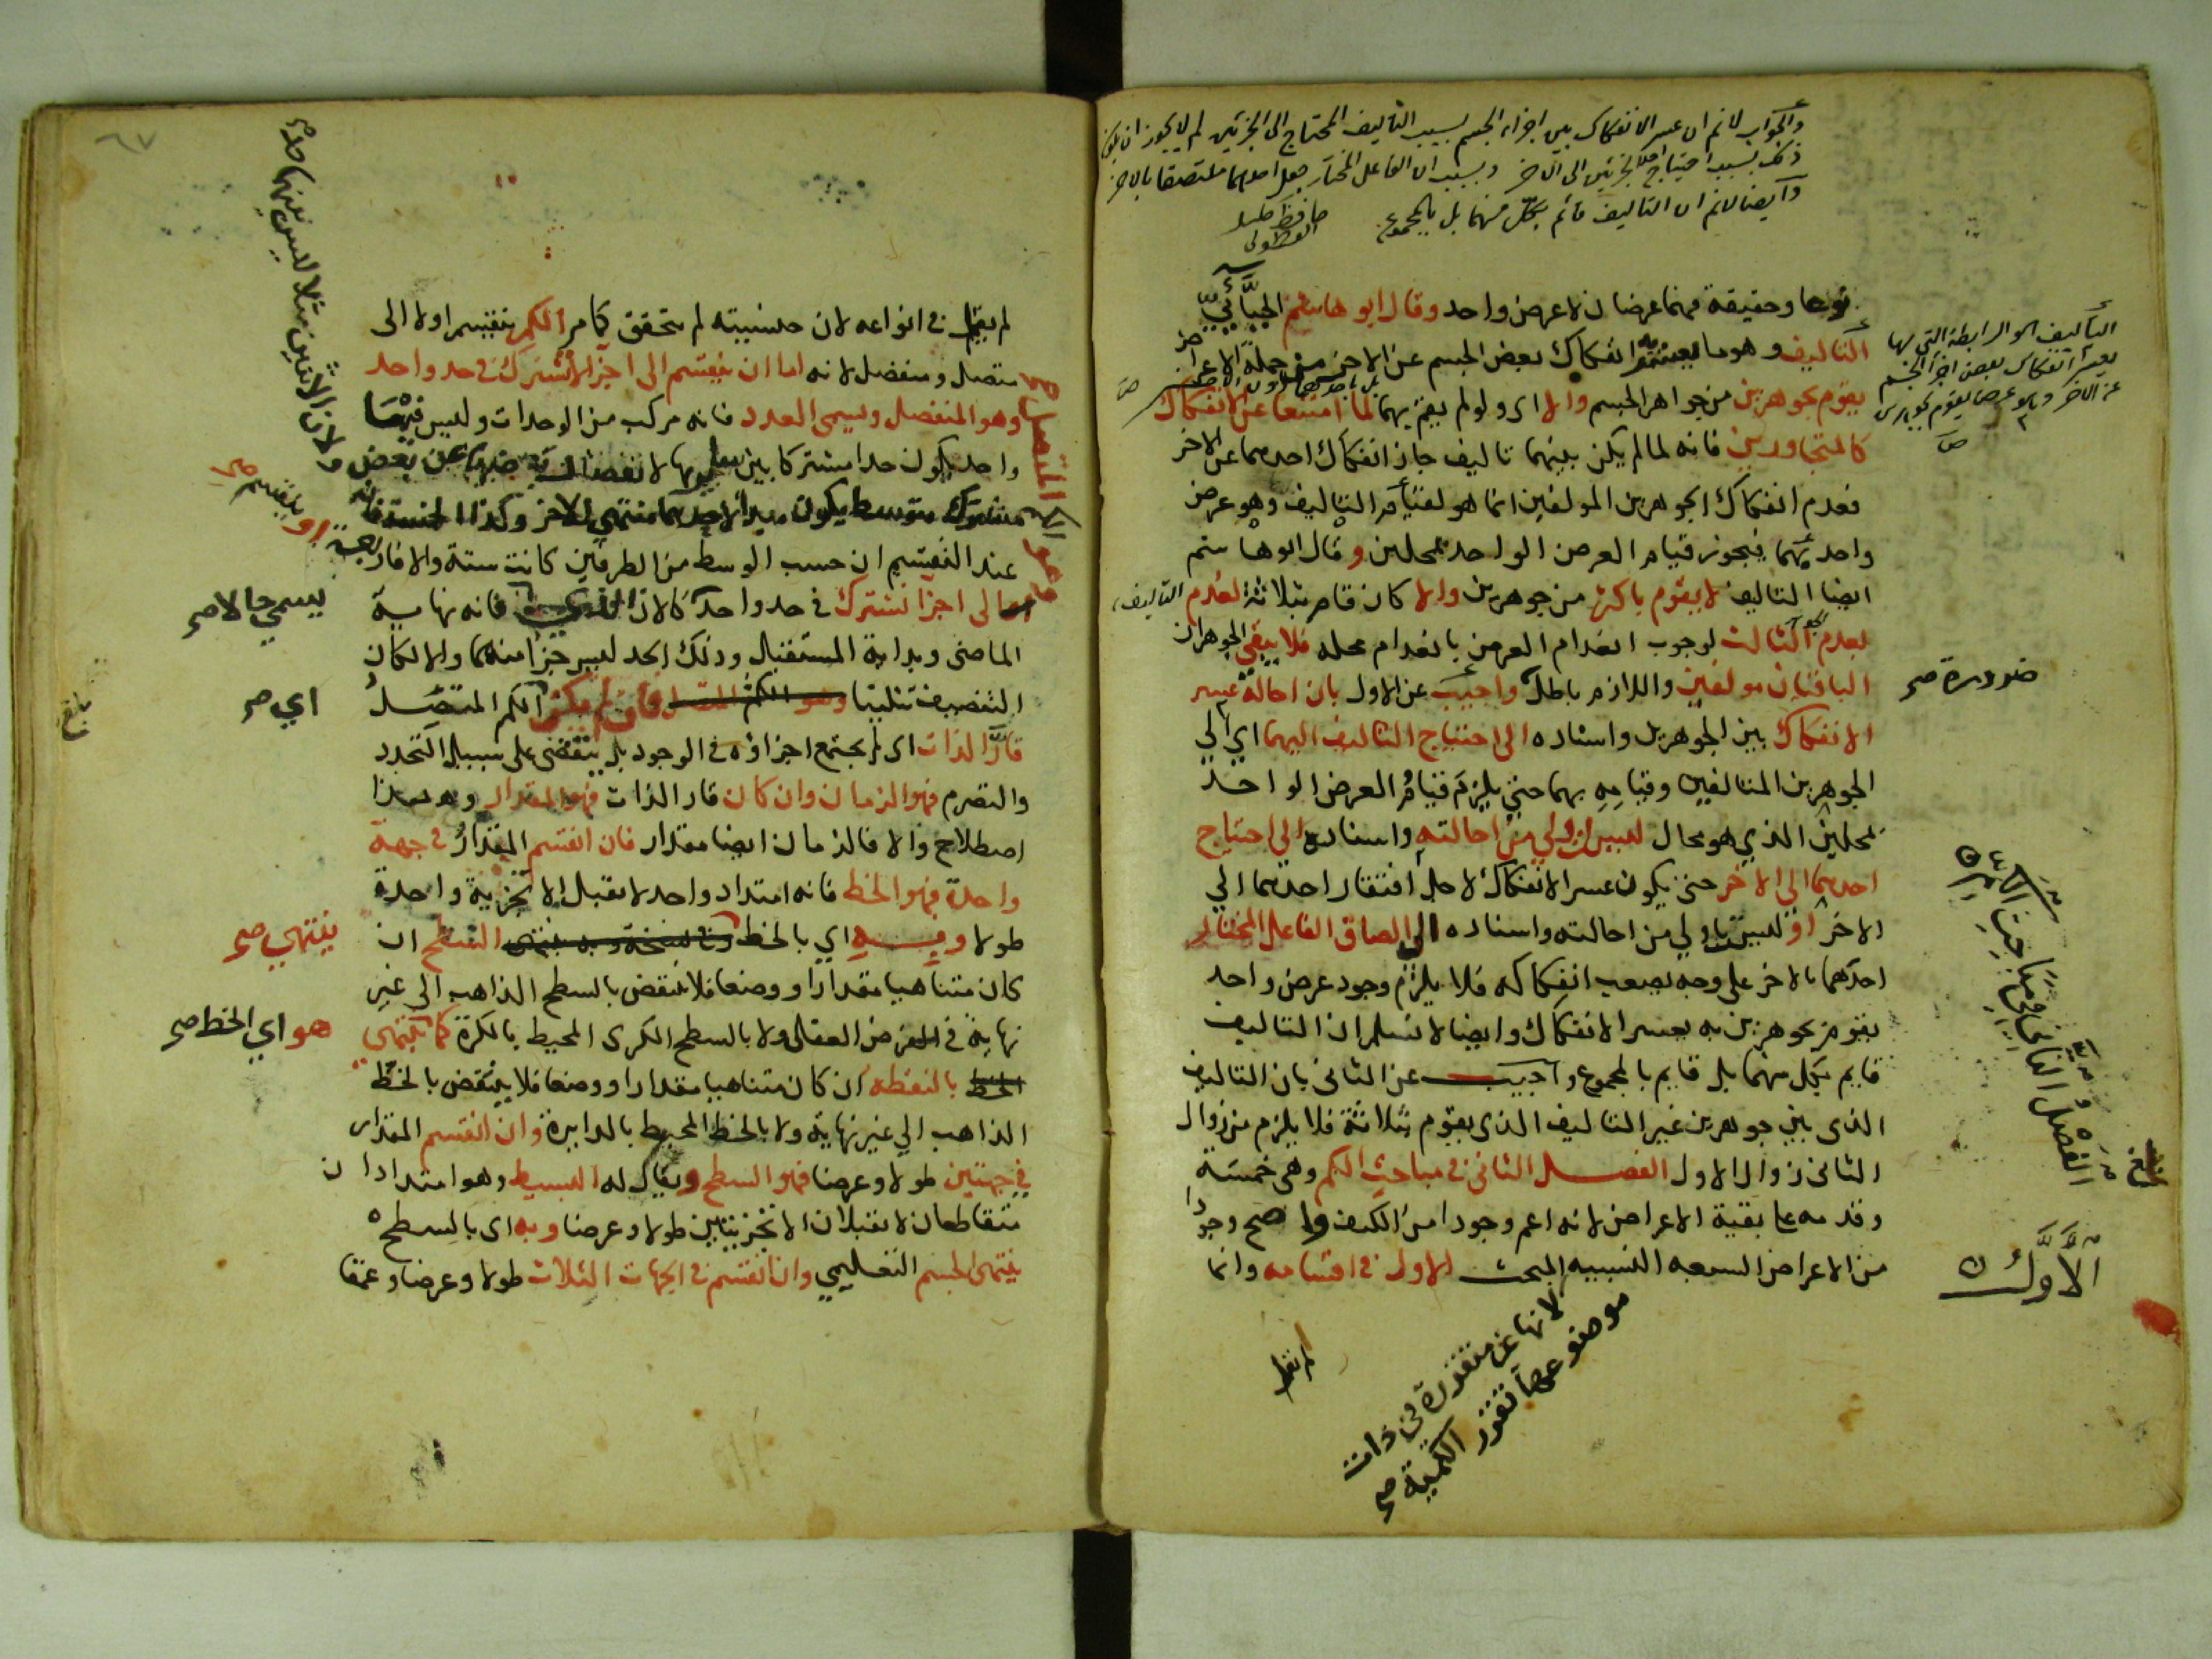 والجواب لانم ان عسر الانفكاك بين اجزاء الجسم بسبب التاليف المحتاج الى الجزئين لم لا يجوز ان يكون
ذلك بسبب احتياج احد الجزئين الى الآخر وبسبب ان الفاعل المختار جعل احدهما ملتصقا بالاخر
وايضا لانم ان التاليف قائم بكل منهما بل بالمجموع
نوعا وحقيقة فهما عرضان لا عرض واحد وقال ابو هاشم الجبّائيّ
التاليف وهو ما انفكاك بعض الجسم عن الاخر من جملة الاعراض
يقوم بجوهرين من جواهر الجسم والا اى ولو لم يقم بهما لما امتنعا عن الانفكاك
كالمتجاورين فانه لما لم يكن بينهما تاليف جاز انفكاك احدهما عن الاخر
فعدم انفكاك الجوهرين المولفين انما هو لقيام التاليف وهو عرض
واحد بهما فيجوز قيام العرض الواحد بمحلين وقال ابو هاشم
ايضا التاليف لا يقوم باكثر من جوهرين والا كان قام بثلاثة لعدم التاليف
بعدم الثالث لوجوب انعدام العرض بانعدام محله فلا يبقى الجوهران
الباقيان مولفين واللازم باطل واجيب عن الاول بان احالة عسر
الانفكاك بين الجوهرين واسناده الى احتياج التاليف اليهما اى الي
الجوهرين المتالفين وقيامه بهما حتي يلزم قيام العرض الواحد
بمحلين الذي هو محال ليس اولي من احالته واسناده الي احتياج
احدهما الي الاخر حتى يكون عسر الانفكاك لاجل افتقار احدهما الي
الاخر او ليس باولي من احالته واسناده الى الصاق الفاعل المختار
احدهما بالاخر على وجه يصعب انفكاكه فلا يلزم وجود عرض واحد
يقوم بجوهرين به يعسر الانفكاك وايضا لا نسلم ان التاليف
قايم بكل منهما بل قايم بالمجموع واجيب عن الثانى بان التاليف
الذى بين جوهرين غير التاليف الذى يقوم بثلاثة فلا يلزم من زوال
الثانى زوال الاول الفصل الثانى فى مباحث الكم وهى خمسة
وقدمه على بقية الاعراض لانه اعم وجودا من الكيف واصح وجودا
من الاعراض السبعه النسبيه المبحث الاول فى اقسامه وانما
التاليف هو الرابطة التي بها
يعسر انفكاك بعض اجزا الجسم
عن الاخر وهو عرض يقوم بجوهرين
ضرورة صح
الفصل الثاني في مباحث الكم
بلغ
الاول
لانها غير متقررة في ذات
موضوعها تقرر الكمية صح
لم يقل
٦٧
لم يقل فى انواعه لان جنسيته لم تتحقق كما مر الكم ينقسم اولا الى
متصل ومنفصل لانه اما ان ينقسم الى اجزا لا تشترك فى حد واحد
وهو المنفصل ويسمى العدد فانه مركب من الوحدات وليس فيها
واحد يكون حدا مشتركا بين
عند التقسيم ان حسب الوسط من الطرفين كانت ستة والا فاربعة
الى اجزا تشترك في حد واحد كالان فانه نهاية
الماضى وبداية المستقبل وذلك الحد ليس جزا منهما والا لكان
التنصيف تثليثا فان لم يكن الكم المتصل
قارّ الذات اى لم يجتمع اجزاؤه فى الوجود بل ينقضى على سبيل التجدد
والتصرم فهو الزمان وان كان قار الذات فهو المقدار وهذا
اصطلاح والا فالزمان ايضا مقدار فان انقسم المقدار فى جهة
واحدة فهو الخط فانه امتداد واحد لا يقبل الا تجزية واحدة
طولا وبه اي بالخط السطح ان
كان متناهيا مقدارا ووضعا فلا ينقض بالسطح الذاهب الى غير
نهاية فى الفرض العقلى ولا بالسطح الكرى المحيط بالكرة كما ينتهى
الخط بالنقطة ان كان متناهيا مقدارا ووضعا فلا ينقض بالخط
الذاهب الي غير نهاية ولا بالخط المحيط بالدايرة وان انقسم المقدار
في جهتين طولا وعرضا فهو السطح ويقال له البسيط وهو امتدادان
متقاطعان لا يقبلان الا تجزيتين طولا وعرضا وبه اى بالسطح
ينتهى الجسم التعليمي وان انقسم فى الجهات الثلاث طولا وعرضا وعمقا
او ينقسم صح
اي صح
بلغ
ينتهي صح
هو اي الخط صح